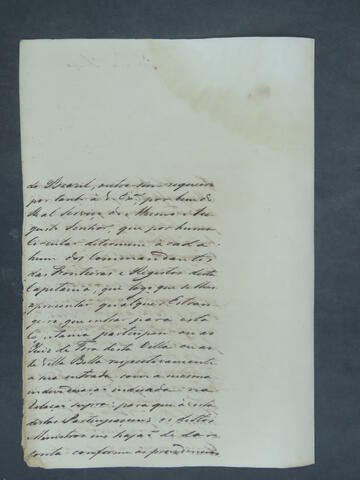 do Brazil, outro sim requeiro
por tanto á V. Exa., por bem do
Real Serviço do Mesmo Au
gusto Senhor, que por huma
Circular determine á cada
hum dos Commandantes
das Fronteiras e Registos desta
Capitania, que logo que se lhes
apresentar qualquer Estran
geiro, que entrar para esta
Capitania participem ou ao
Juiz de Fora desta Villa ou ao
de Villa Bella respectivamente
a sua entrada com a mesma
individuação indicada na
Relação supra: para que á vista
destas Participaçoens os dittos
Ministros me hajaõ de dar
conta conforme as providencias